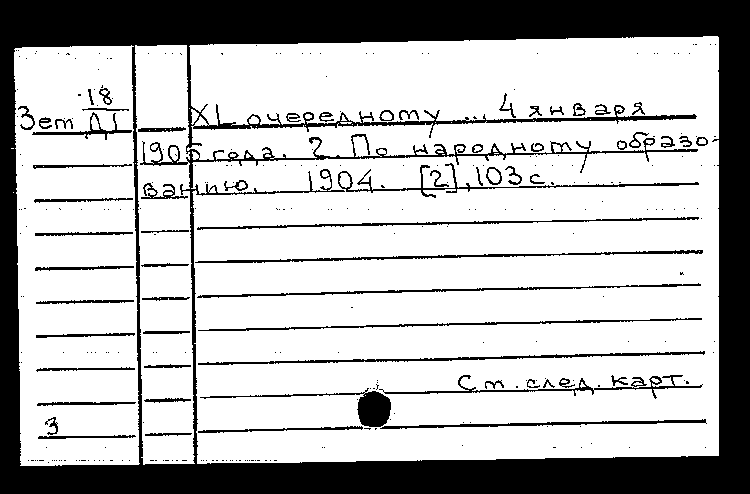 18
Зет Д1
XL очередному ... 4 января
1905 года. 2. По народному образо-
ванию. 1904. [2], 103 с.
См. след. карт.
3